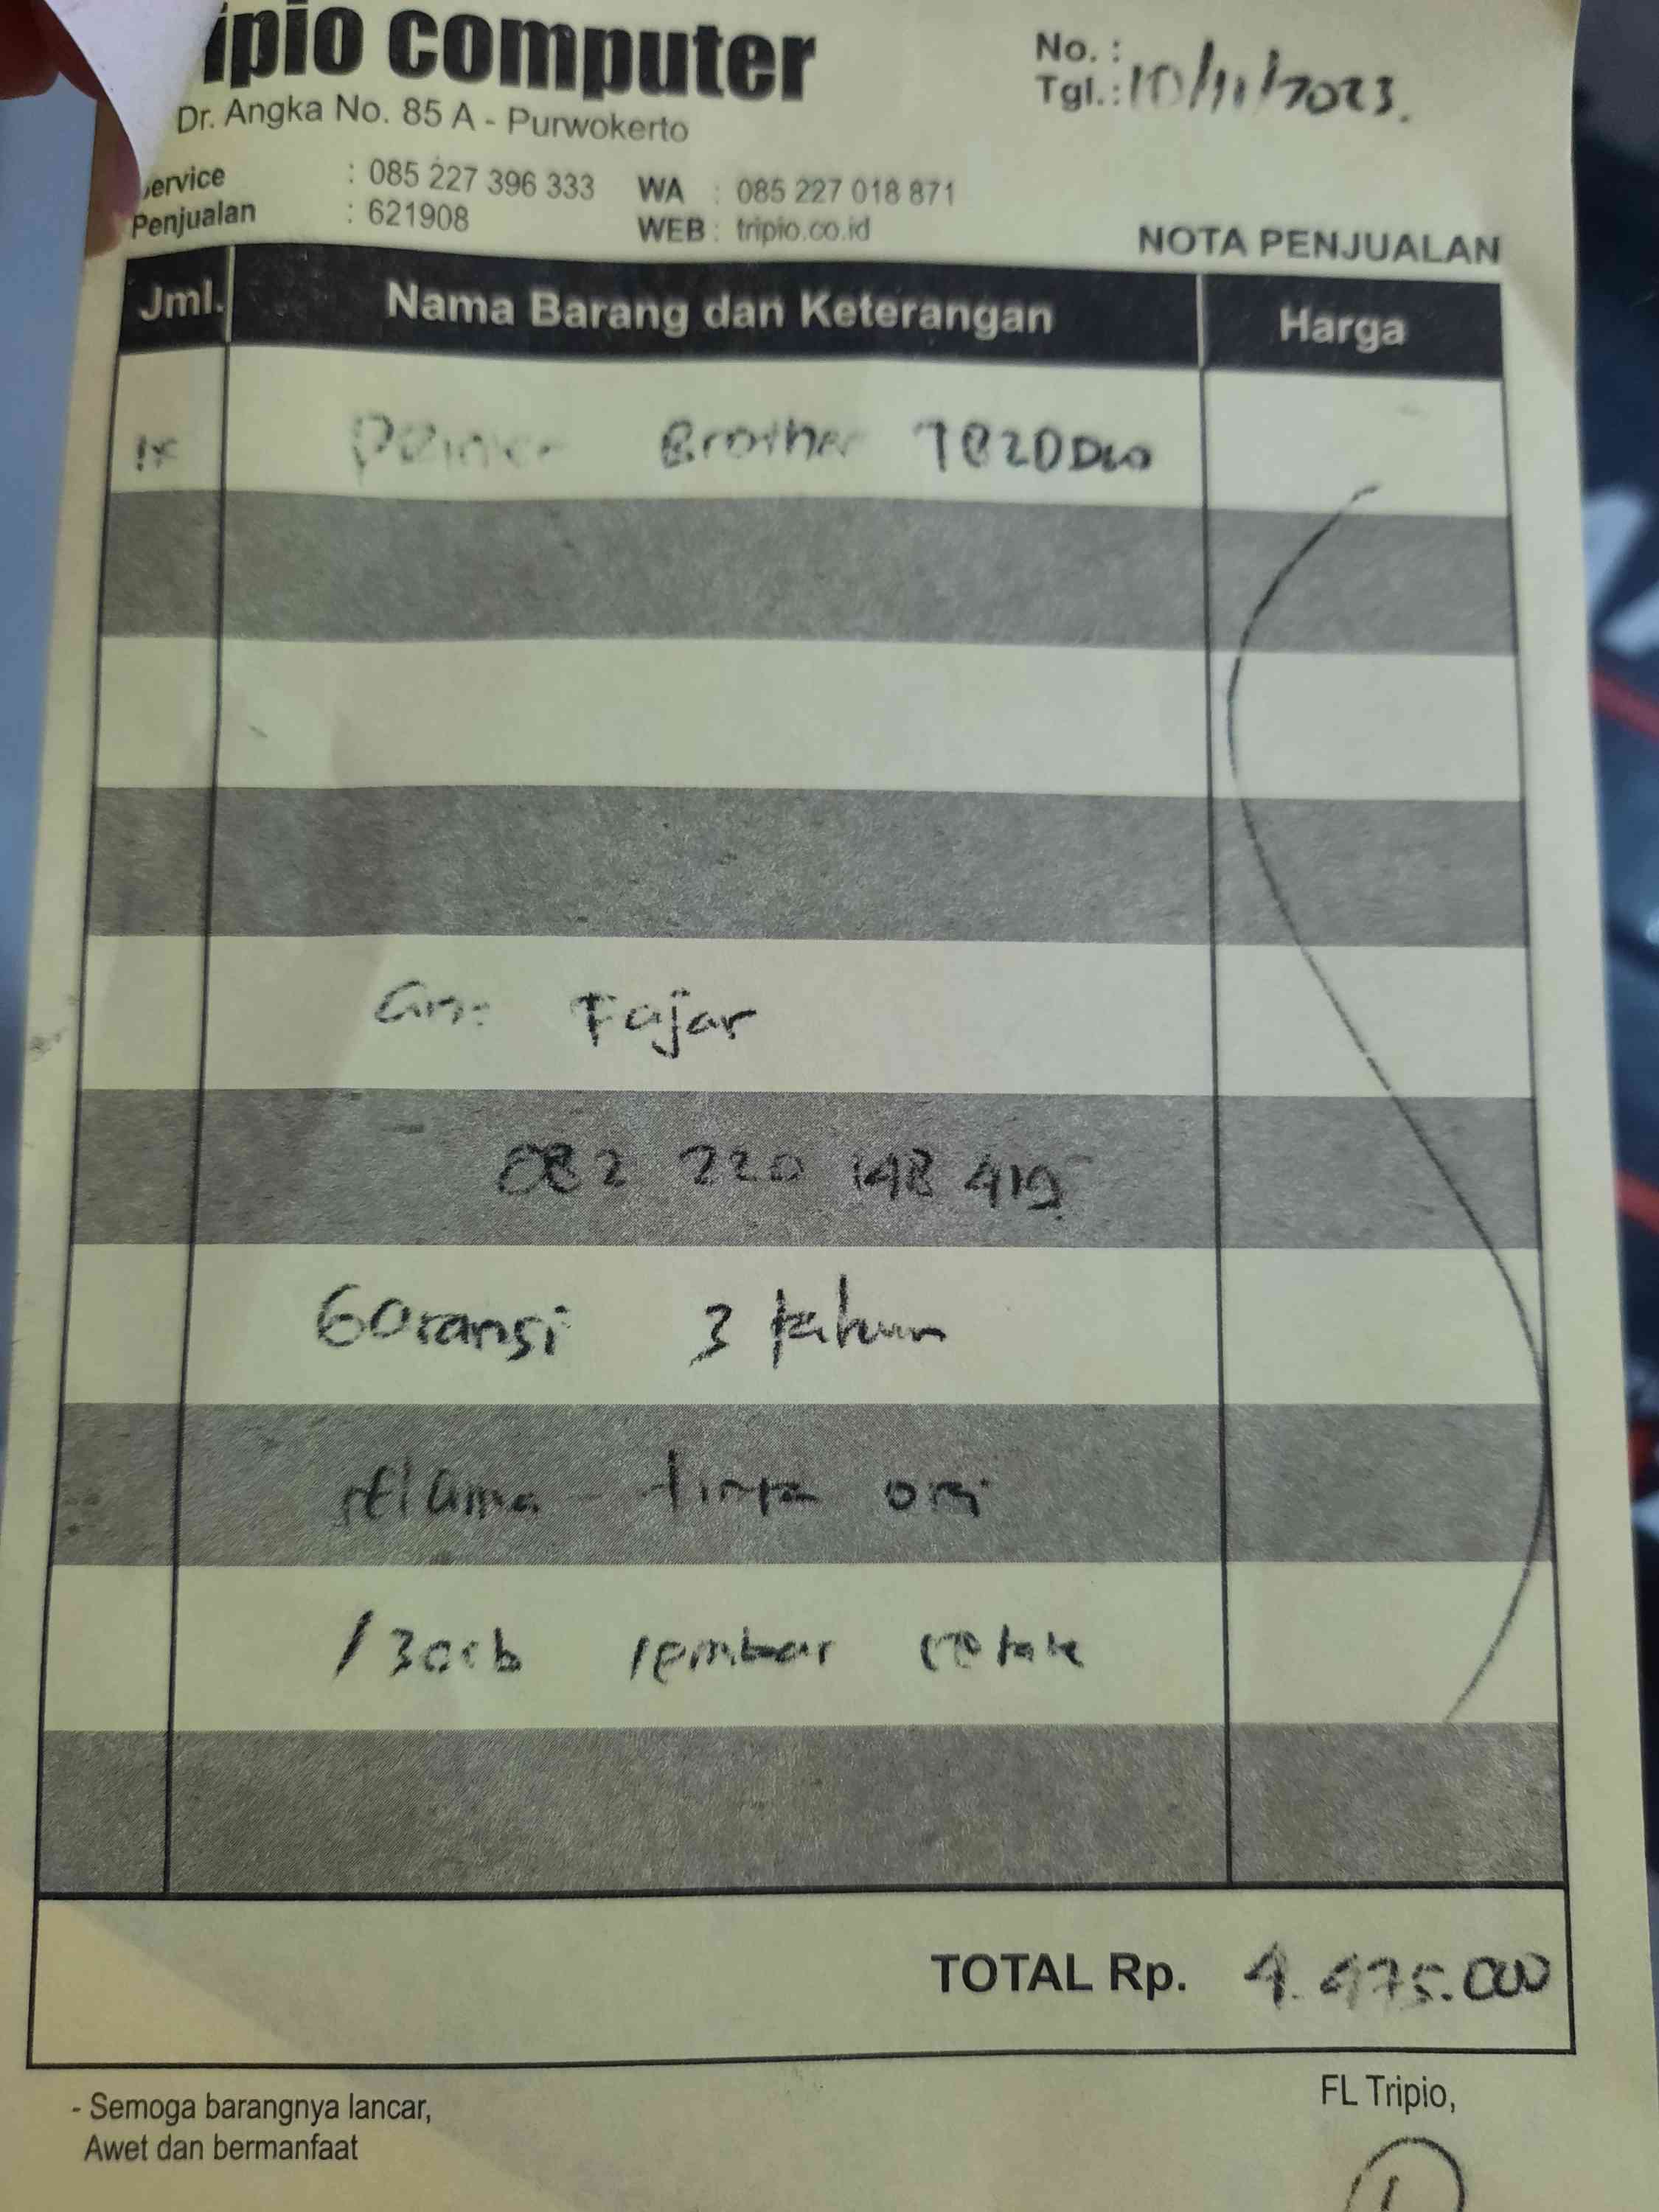 ipio computer
Dr. Angka No. 85 A - Purwokerto
No. :
Tgl.: 10/11/2023.
ervice : 085 227 396 333 WA : 085 227 018 871
Penjualan : 621908 WEB : tripio.co.id
NOTA PENJUALAN
Jml. Nama Barang dan Keterangan Harga
1x Printer Brother T820DW
an: Fajar
082 220 148 415
Garansi 3 tahun
selama tinta ori
/ 30rb lembar cetak
TOTAL Rp. 4.475.000
- Semoga barangnya lancar,
Awet dan bermanfaat
FL Tripio,